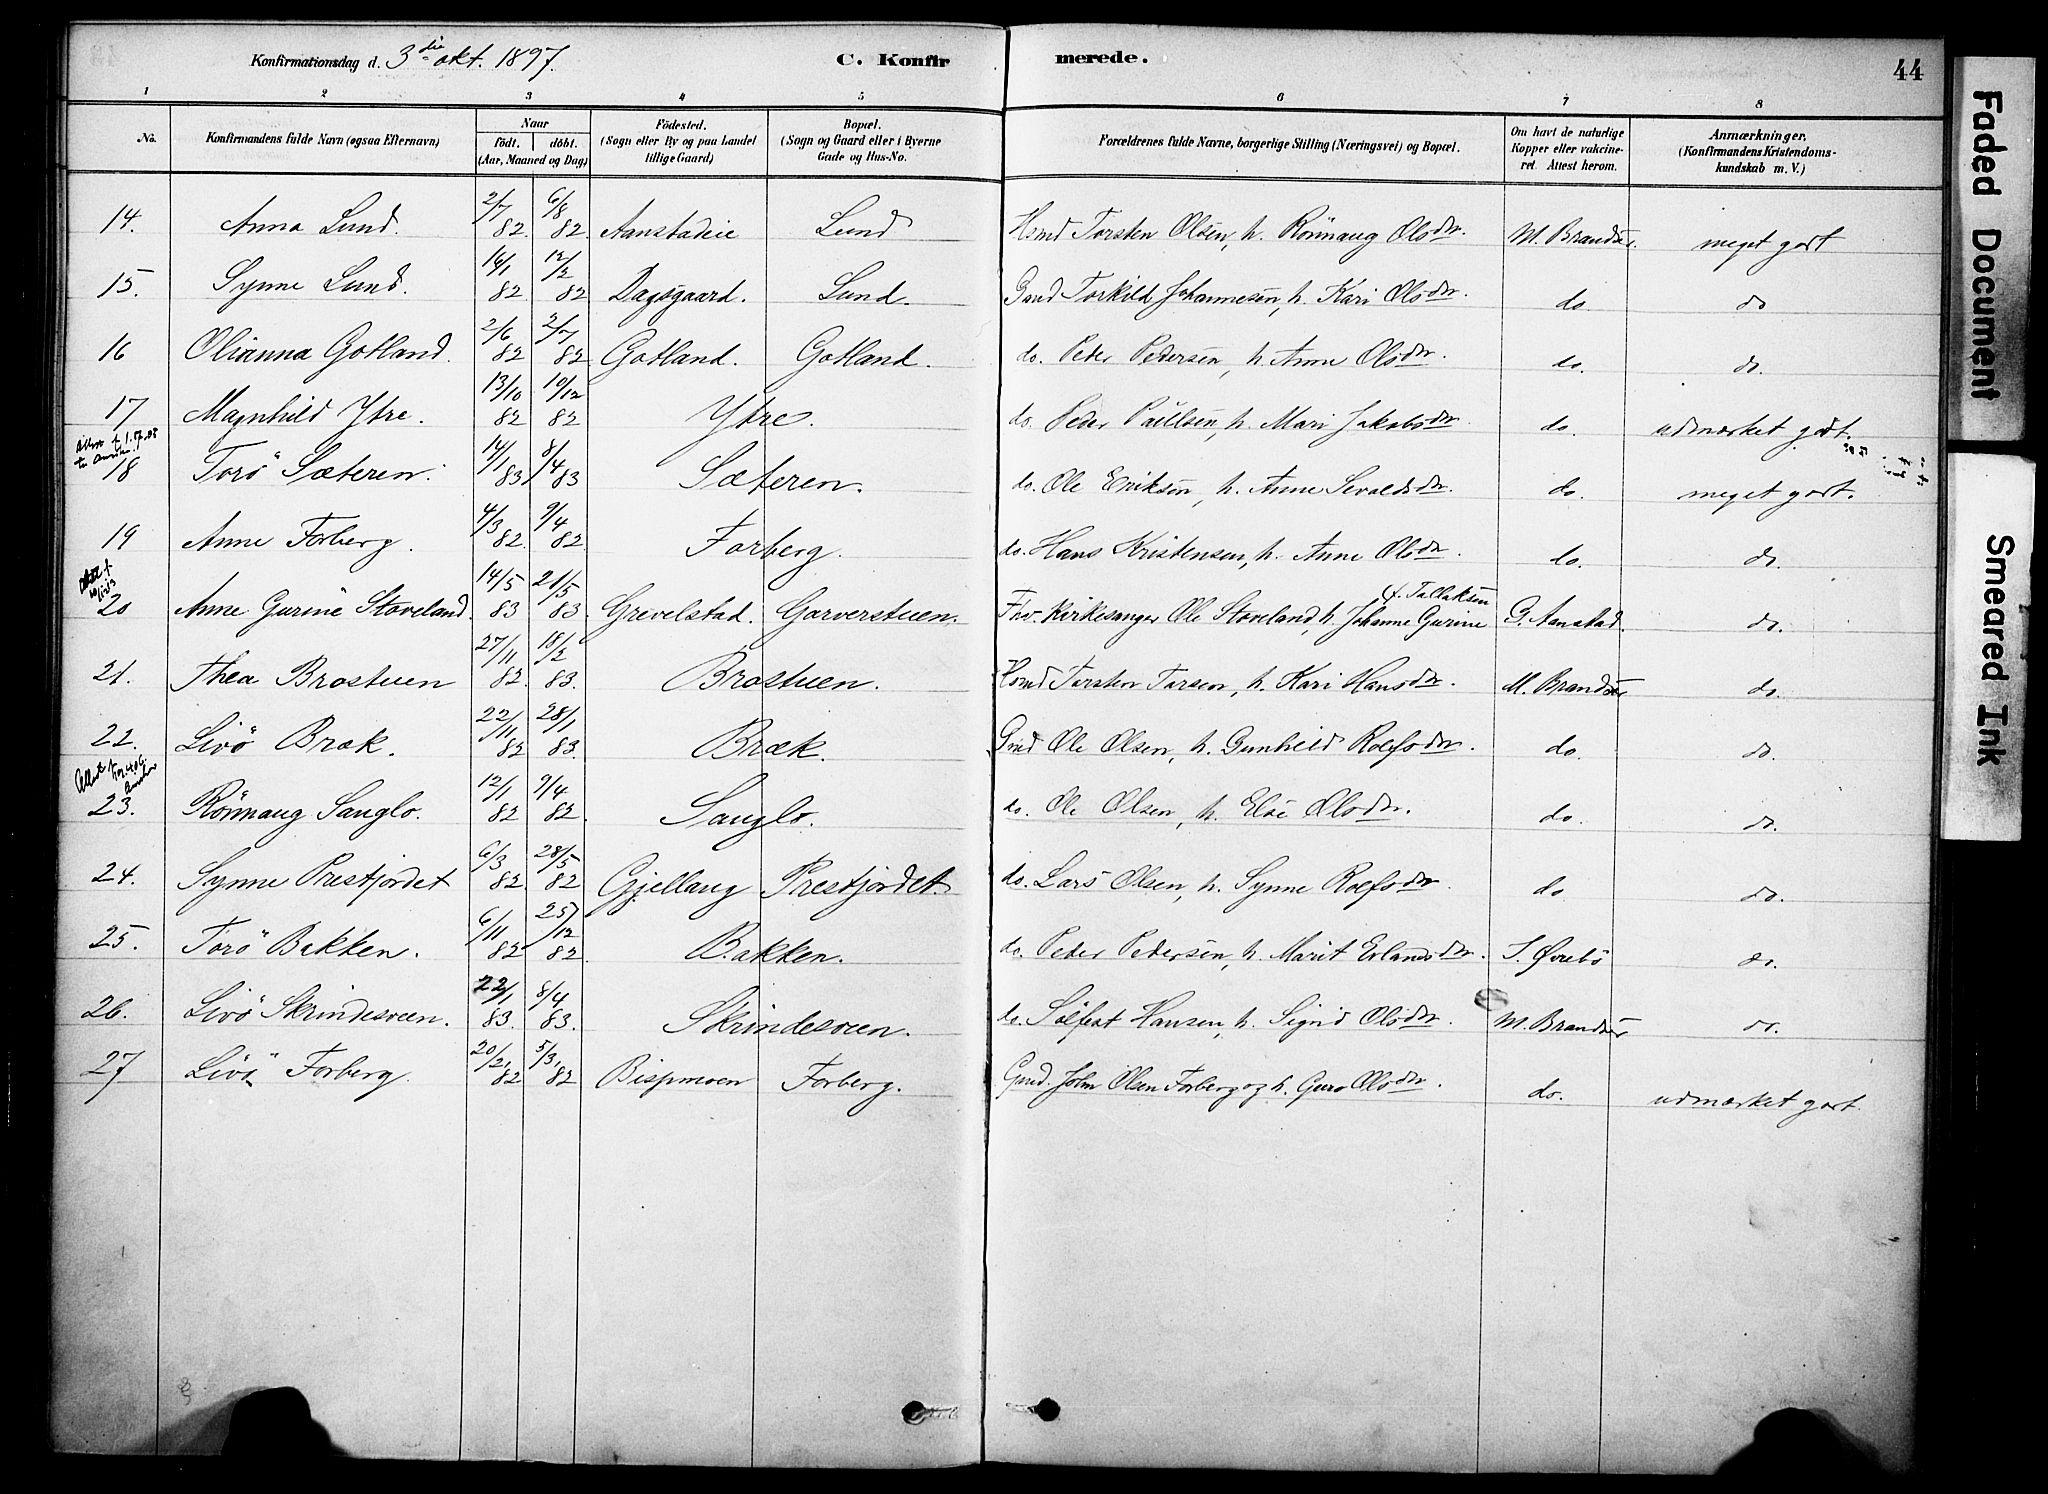 Konfirmationsdag d. 3die okt. 1897. C. Konfirmerede. 44
1 2 3 4 5 6 7 8
No. Konfirmandens fulde Navn (ogsaa Efternavn) Naar födt. döbt. (Aar, Maaned og Dag) Födested. (Sogn eller By og paa Landet tillige Gaard) Bopæl. (Sogn og Gaard eller i Byerne Gade og Hus-No. Forældrenes fulde Navne, borgerlige Stilling (Næringsvei) og Bopæl. Om havt de naturlige Kopper eller vakcineret. Attest herom. Anmærkninger. (Konfirmandens Kristendomskundskab m. V.)
14. Anna Lund. 2/7 82. 6/8 82. Aanstadeie Lund Hsmd Torsten Olsen, h. Rönnaug Olsdr. M. Brandsar meget godt
15. Synne Lund. 14/1 82 12/2 82 Dagsgaard. Lund. Gmd Torkild Johannesön, h. Kari Olsdr. do. do
16 Olianna Gotland. 2/6 82 2/7 82 Gotland. Gotland. do. Peder Pedersen, h. Anne Olsdr. do. do.
17 Magnhild Ytre. 13/10 82 10/12 82 Ytre. do. Peder Paulsen, h. Mari Jakobsdr. do. udmærket godt.
18 Torö Sæteren. 14/1 83 8/4 83 Sæteren. do. Ole Eriksön, h. Anne Sevaldsdr. do. meget godt.
19 Anne Forberg. 4/3 82. 9/4 82. Forberg. do. Hans Kristensen, h. Anne Olsdr. do. do.
20 Anne Gurine Stoveland. 14/5 83 21/5 83. Grevelstad. Garverstuen. Fhv. Kirkesanger Ole Stoveland, h. Johanne Gurine f. Tallaksön G. Aanstad. do.
21. Thea Brostuen 27/11 82. 18/2 83. Brostuen. Hsmd Torsten Torsen, h. Kari Hansdr. M. Brandsar do.
22. Livö Bræk. 22/11 82 28/1 83. Bræk. Gmd Ole Olsen, h. Gunhild Rolfsdr. do. do.
23. Rönnaug Sanglo. 12/1 82 9/4 82. Sanglo. do. Ole Olsen, h. Elsi Olsdr. do. do.
24. Synne Prestjordet 6/3 82. 28/5 82 Gjellang Prestjordet. do. Lars Olsen, h. Synne Rolfsdr. do do.
25. Torö Bakken. 6/11 82 25/12 82. Bakken. do. Peder Pedersen, h. Marit Erlandsdr. S. Övrebö do.
26. Livö Skrindesveen. 22/1 83. 8/4 83. Skrindesveen. do. Sölfest Hansen, h. Sigrid Olsdr. M. Brandsar do.
27 Livö Forberg. 20/2 82 5/3 82 Bispmoen Forberg. Gmd. John Olsen Forberg og h. Guro Olsdr. do. udmærket godt.
Faded Document
Smeared Ink